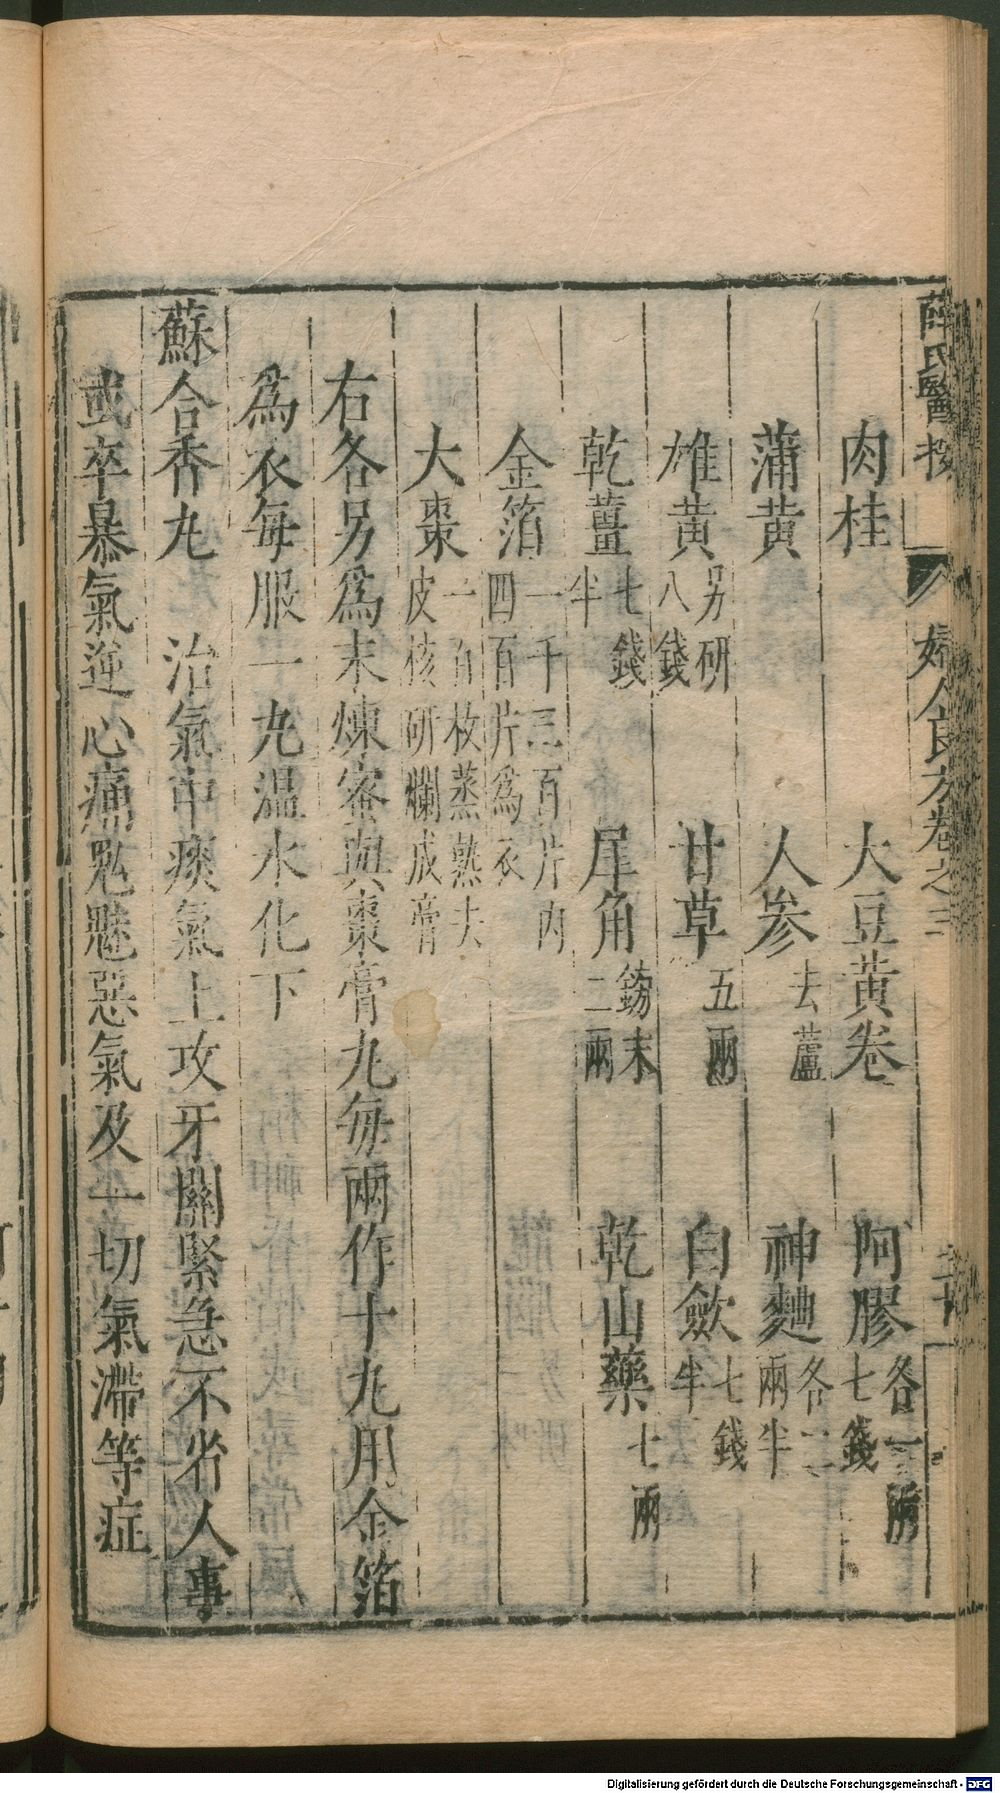 薛氏醫按　婦人良方卷之三
肉桂　大豆黃卷　阿膠各一兩七錢
蒲黃　人參去蘆　神麯各二兩半
雄黃另研八錢　甘草五兩　白歛七錢半
乾薑七錢半　犀角鎊末二兩　乾山藥七兩
金箔一千三百片內四百片爲衣
大棗一百枚蒸熟去皮核研爛成膏
右各另爲末煉蜜與棗膏丸每兩作十丸用金箔
爲衣每服一丸溫水化下
蘇合香丸　治氣中痰氣上攻牙關緊急不省人事
或卒暴氣逆心痛鬼魅惡氣及一切氣滯等症
Digitalisierung gefördert durch die Deutsche Forschungsgemeinschaft - DFG